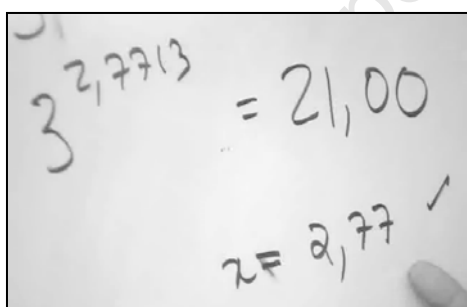 3^2,7713 = 21,00
x = 2,77 ✓